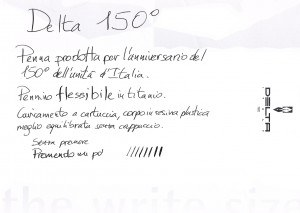 Delta 150°
Penna prodotta per l'anniversario del
150° dell'unità d'Italia.
Pennino flessibile in titanio.
Caricamento a cartuccia, corpo in resina plastica
meglio equilibrata senza cappuccio.
Senza premere
Premendo un po'
DELTA
the write size